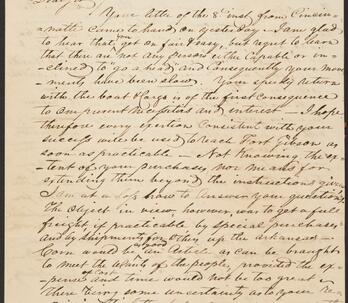 Your letter of the 8 inst. from Cincin-
-natti came to hand on yesterday - I am glad
to hear that you got on fair & easy, but regret to learn
that there are not any persons either Capable or in-
clined to go ahead, and Consequently your move-
-ments have been slow. Your speedy return
with the boat & Cargo is of the first Consequence
to our present necessities and interest - I hope
therefore every exertion Consistent with your
success will be used to reach Fort Gibson as
soon as practicable - Not Knowing the ex-
-tent of your purchases nor means for
extending them beyond the instructions given
I am at a loss how to answer your questions
The Object in view, however, was to get a full
freight if practicable by special purchases
and by shipments for others up the arkansas -
Corn would be as good an article as can be brought
to meet the wants of the people, provided the ex-
pense of Corn and time would not be too great.
There being some uncertainty as to your